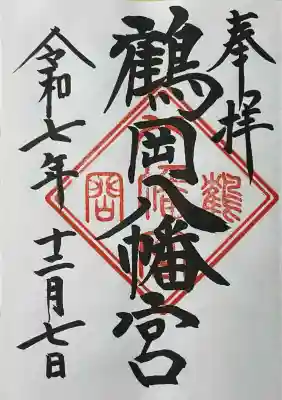 奉拝
鶴岡八幡宮
令和七年 十二月七日